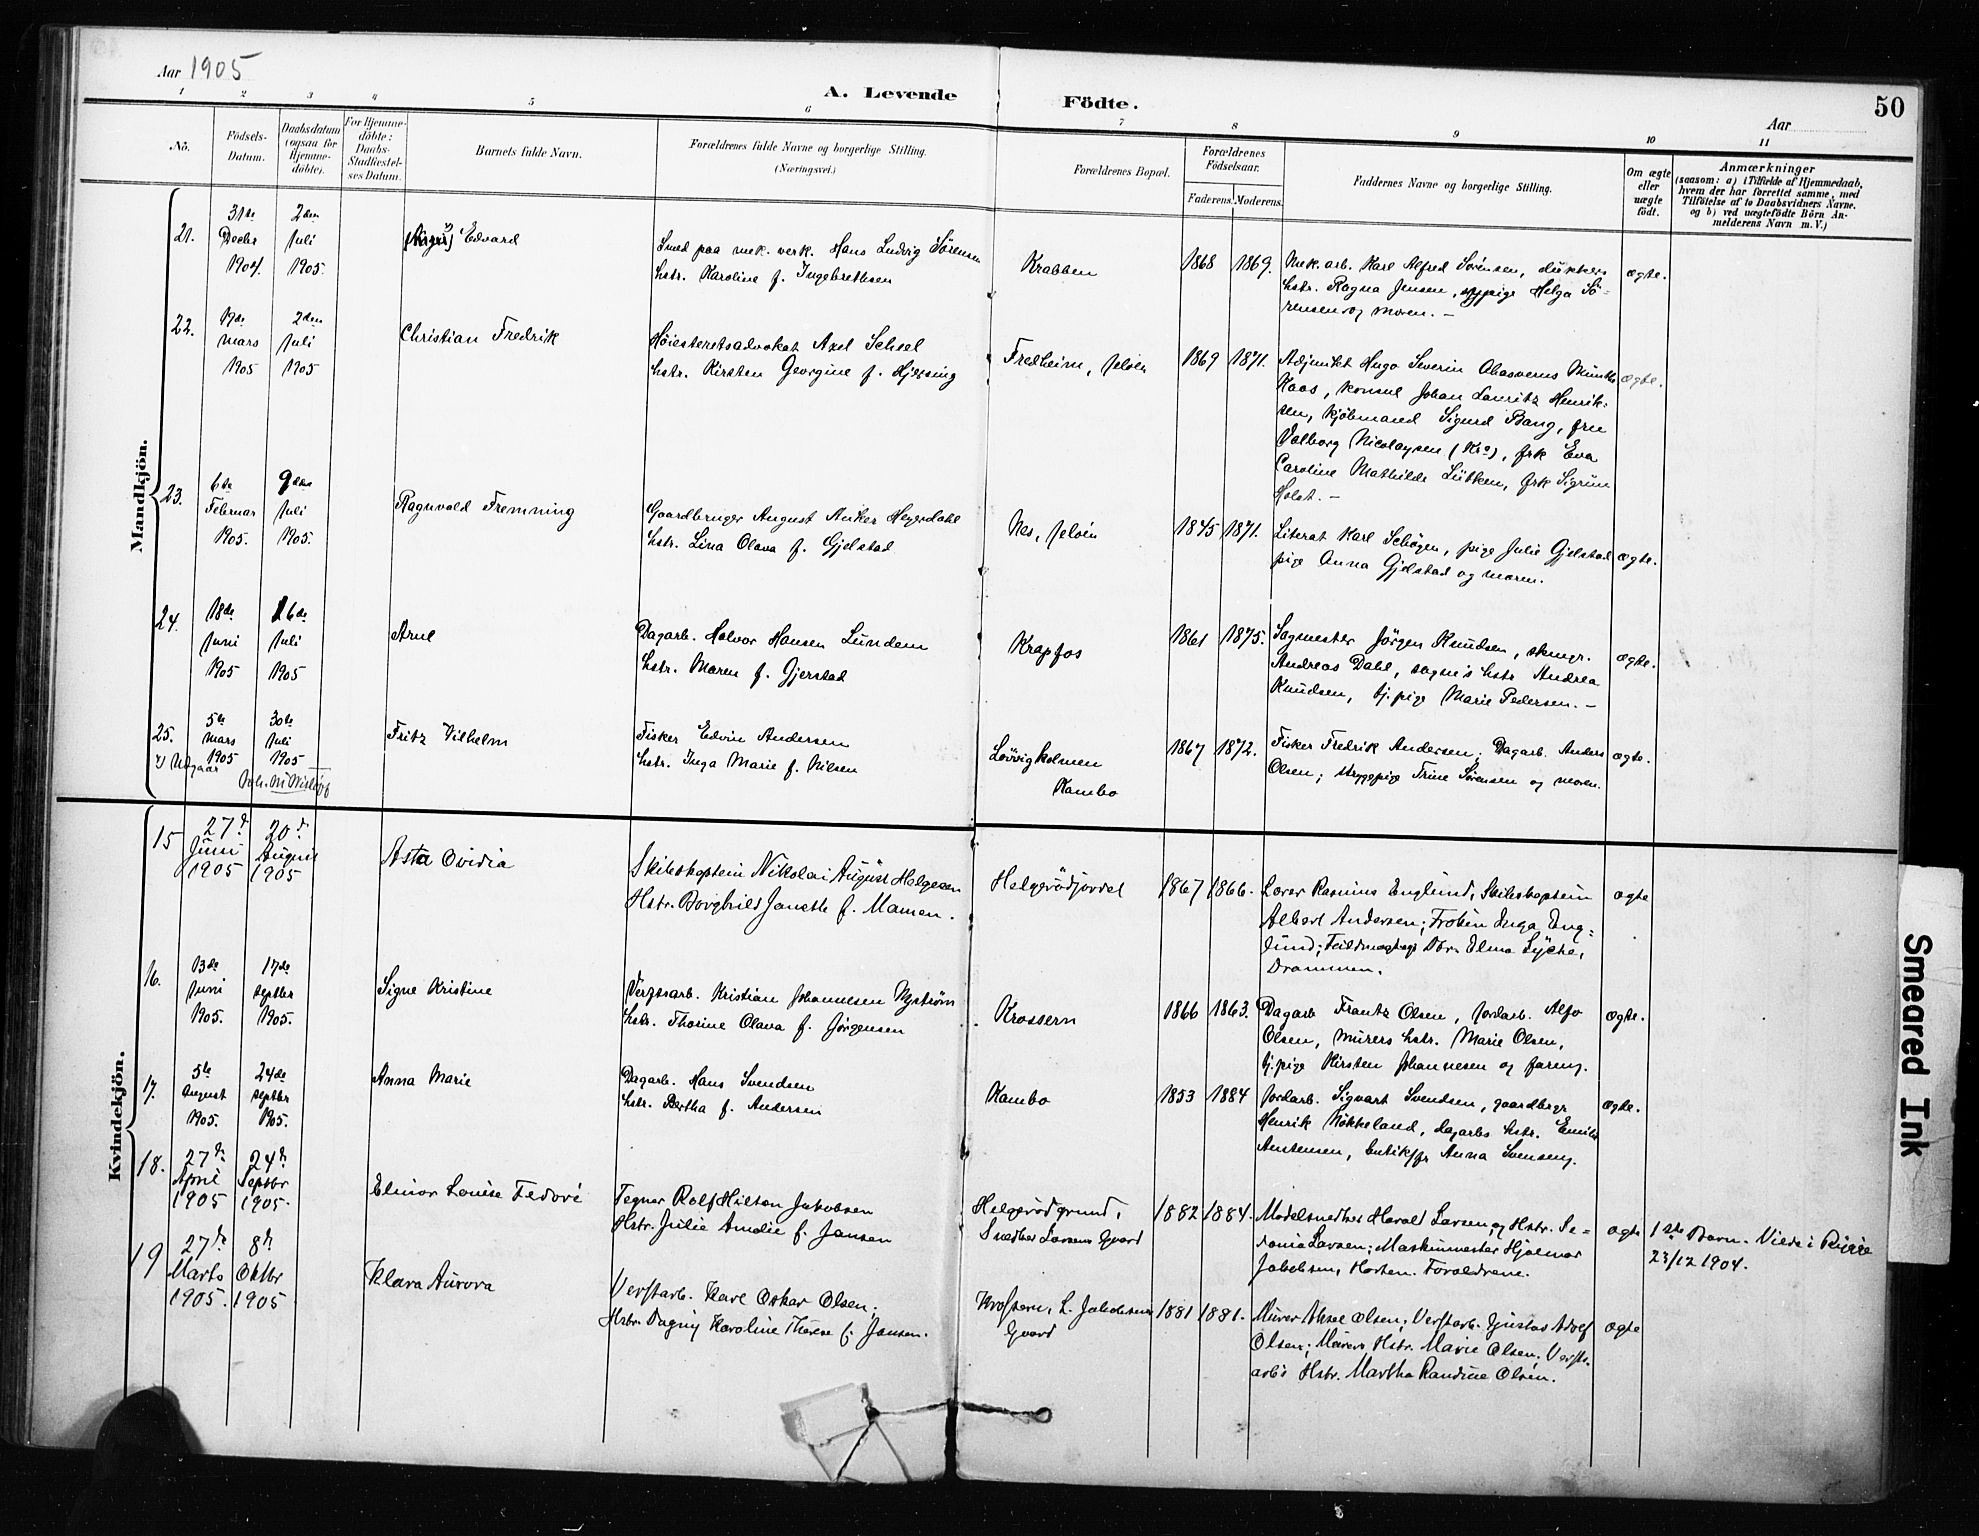 Aar 1905
A. Levende Födte.
50
Aar
1 2 3 4 5 6 7 8 9 10 11
No.
Födsels-Datum.
Daabsdatum (ogsaa for Hjemmedöbte).
For Hjemmedöbte: Daabs-Stadfæstelses Datum.
Barnets fulde Navn.
Forældrenes fulde Navne og borgerlige Stilling.
(Næringsvei.)
Forældrenes Bopæl.
Forældrenes Födselsaar.
Faderens. Moderens.
Faddernes Navne og borgerlige Stilling.
Om ægte eller uægte födt.
Anmærkninger
(saasom: a) i Tilfælde af Hjemmedaab,
hvem der har forrettet samme, med
Tilföielse af to Daabsvidners Navne.
og b) ved uægtefödte Börn An-
melderens Navn m. V.)
Mandkjön.
21. 31te Decbr 1904. 2den Juli 1905. Edvard
Smed paa mek. verk. Hans Ludvig Sørensen
hstr. Karoline f. Ingebrethsen
Krabben 1868 1869.
Mek. arb. Karl Alfred Sørensen, dukkers
hstr. Ragna Jensen, sypige Helga Sö-
rensen og moren. –
ægte.
22. 19de Mars 1905 2den Juli 1905 Christian Fredrik
Høiesteretsadvokat Axel Scheel
hstr. Kirsten Georgine f. Hjersing
Fredheim, Jeløen 1869 1871.
Adjunkt Hugo Severin Ahasverus Munthe
Kaas, konsul Johan Lauritz Henrik-
sen, kjøbmand Sigurd Bang, fru
Valborg Nicolaysen (Kra), frk Eva
Caroline Mathilde Lütken, frk Sigrun
Holst. –
ægte.
23. 6te Februar 1905. 9de Juli 1905. Ragnvald Fremming
Gaardbruger August Anker Heyerdahl
hstr. Lina Olava f. Gjelstad
Nes, Jeløen 1845 1871.
Literat Karl Schøyen, pige Julie Gjelstad
pige Anna Gjelstad og moren.
ægte.
24. 18de Juni 1905 16de Juli 1905 Arne
Dagarb. Halvor Hansen Lundem
hstr. Maren f. Gjerstad
Krapfos 1861 1875.
Sagmester Jörgen Knudsen, skmgr.
Andreas Dahl, sagm's hstr Andrea
Knudsen, tj.pige Marie Pedersen. –
ægte.
25. 5te Mars 1905 30te Juli 1905 Fritz Vilhelm
Fisker Edvin Andersen
hstr. Inga Marie f. Nilsen
Løvvigholmen
Kambo
1867 1872.
Fisker Fredrik Andersen; Dagarb. Anders
Olsen; strygepige Trine Sørensen og moren.
ægte.
x) Udgaar
Kvindekjön.
15 27d Juni 1905 20d August 1905 Asta Ovidia
Skibskaptein Nikolai August Helgesen
Hstr. Borghild Janeth f. Mamen.
Helgerödjordet 1867 1866.
Lærer Rasmus Englund, Skibskaptein
Albert Andersen; Fröken Inga Eng-
lund; Dtr. Elma Lyche,
Drammen.
ægte
16. 13de Juni 1905. 17de septbr 1905. Signe Kristine
Verftsarb. Kristian Johannesen Nystrøm
hstr. Thorine Olava f. Jørgensen
Krossern 1866 1863.
Dagarb Frantz Olsen, Jordarb. Alfo
Olsen, murers hstr. Marie Olsen,
tj.pige Kirsten Johannesen og farmg.
ægte.
17. 5te august 1905. 24de septbr 1905. Anna Marie
Dagarb. Hans Svendsen
hstr. Bertha f. Andersen
Kambo 1853 1884
Jordarb. Sigvart Svendsen, gaardbrgr
Henrik Nökkeland, dagarbs hstr. Emilie
Amtensen, butikjfr Anna Svensen.
ægte.
18. 27d April 1905 24d Septbr 1905. Elinor Louise Fedove
Tegner Rolf Hilton Jakobsen
Hstr. Julie Amalie f. Jansen
Helgerödgrund,
Snedker Larsens Gaard
1882 1884.
Modelsnedker Harald Larsen og Hstr. Se-
donia Larsen; Maskinmester Hjalmar
Jakobsen, Horten. Forældrene.
ægte
1ste Barn. Viede i Rygge
23/12 1904.
19 27de Marts 1905. 8d Oktbr 1905 Klara Aurora
Verftarb. Karl Oskar Olsen;
Hstr. Dagny Karoline Therese f. Jansen.
Krossern, L. Jakobsens
Gaard
1881 1881.
Murer Aksel Olsen; Verftarb. Gustav Adolf
Olsen; Murers Hstr. Marie Olsen; Verfts-
arb's Hstr. Martha Randine Olsen.
ægte
Smeared Ink